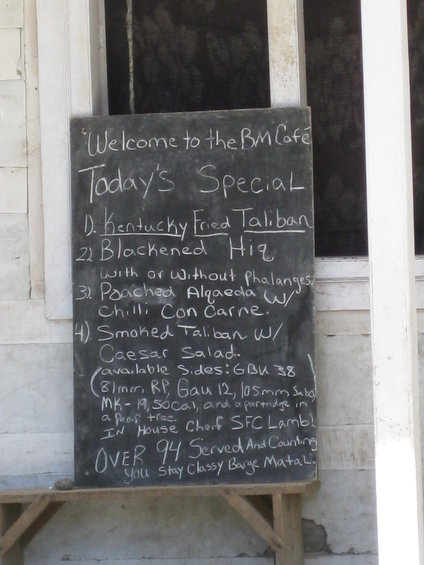 Welcome to the BM Café
Today's Special
1). Kentucky Fried Taliban
2). Blackened Hiq
with or without Phalanges
3). Poached Alqaeda w/
Chilli Con Carne.
4) Smoked Taliban w/
Caesar Salad.
(available Sides: GBU 38
81mm, RP, Gau 12, 105mm Sabo
MK-19, 50 Cal, and a partridge in
a pear tree
IN House Cheif SFC Lamb!
OVER 94 Served And Counting
you Stay Classy Barge Matal.